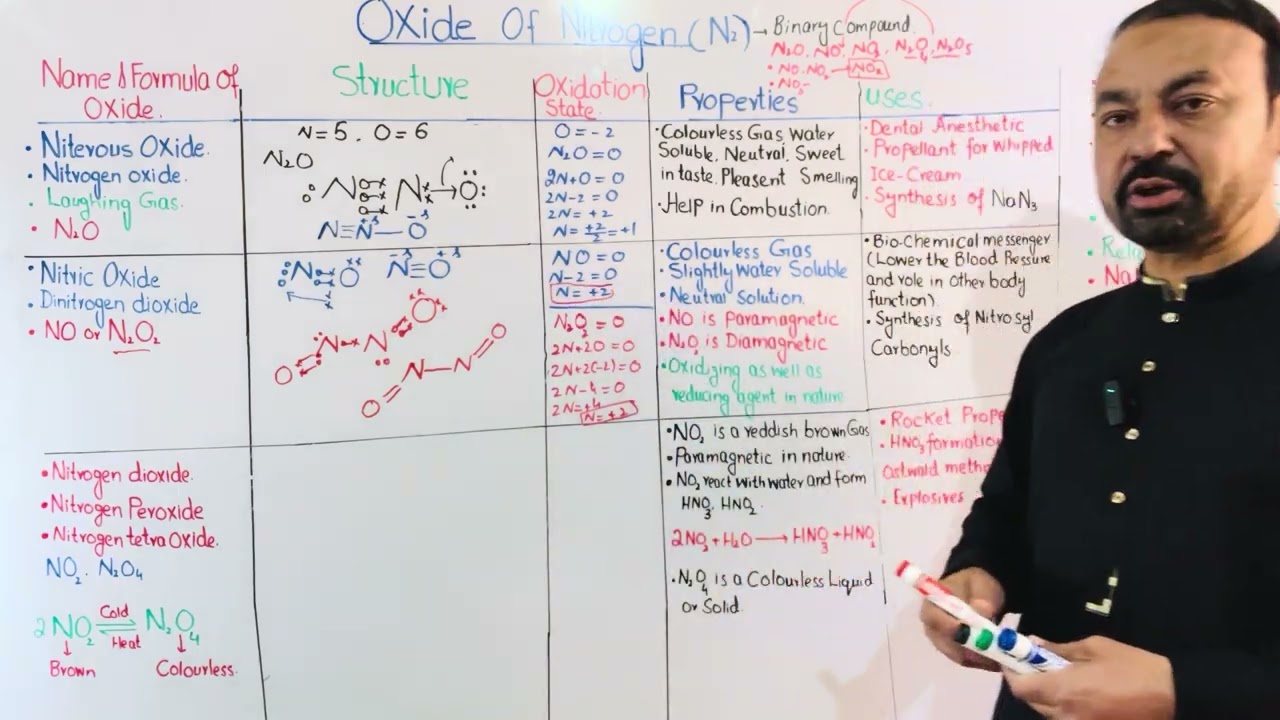 OXide Of Nitrogen (N₂) → Binary Compound.
N₂O, NO, NO₂, N₂O₄, N₂O₅
• NO·NO₂ → NO₂
• NO₃⁻
Name & Formula of
OXide.
Structure
Oxidation
State.
Properties
Uses.
• Niterous OXide.
• Nitrogen oxide.
• Laughing Gas.
• N₂O
N=5, O=6
N₂O
N N → O
N≡N⁺³—O⁻³
O=-2
N₂O=0
2N+O=0
2N-2=0
2N=+2
N=+2/2=+1
• Colourless Gas, Water
Soluble, Neutral, Sweet
in taste. Pleasent Smelling
• Help in Combustion.
• Dental Anesthetic
• Propellant for Whipped
Ice-Cream
• Synthesis of NaN₃
• Nitric OXide
• Dinitrogen dioxide
• NO or N₂O₂
N O
N≡O
O N N O
O=N—N=O
NO=0
N-2=0
N=+2
N₂O₂=0
2N+2O=0
2N+2(-2)=0
2N-4=0
2N=+4
N=+2
• Colourless Gas
• Slightly Water Soluble
• Neutral Solution.
• NO is Paramagnetic
• N₂O₂ is Diamagnetic
• Oxidizing as well as
reducing agent in nature
• Bio-Chemical messenger
(Lower the Blood Pressure
and role in other body
function).
• Synthesis of Nitrosyl
Carbonyls
• Nitrogen dioxide.
• Nitrogen Peroxide
• Nitrogen tetraOxide.
NO₂. N₂O₄
2NO₂ ⇌ N₂O₄
Cold
Heat
↓ ↓
Brown Colourless.
• NO₂ is a reddish brown Gas
• Paramagnetic in nature.
• NO₂ react with water and form
HNO₃. HNO₂.
2NO₂+H₂O → HNO₃+HNO₂
• N₂O₄ is a Colourless Liquid
or Solid.
• Rocket Prope
• HNO₃ formation
ostwald metho
• Explosives